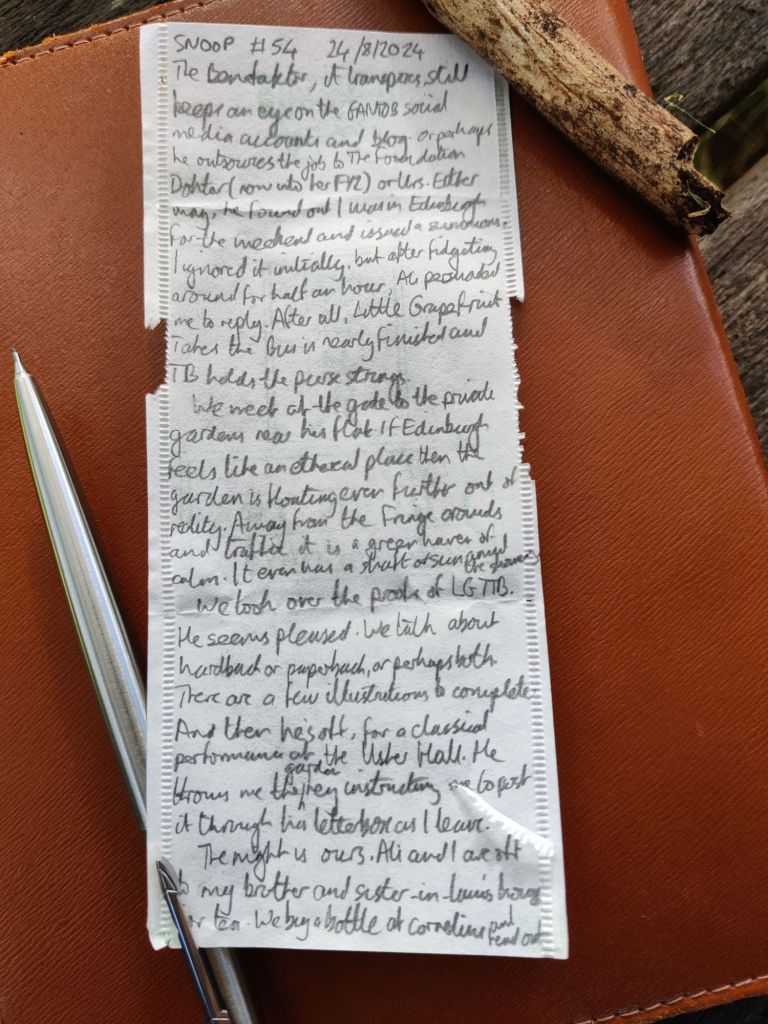 SNOOP #54 24/8/2024
The Bandaktor, it transpires, still
keeps an eye on the GANTOB social
media accounts and blog. Or perhaps
he outsources the job to The Foundation
Doktor (now into her FY2) or Urs. Either
way, he found out I was in Edinburgh
for the weekend and issued a summons.
I ignored it initially, but after fidgeting
around for half an hour, Ali persuaded
me to reply. After all, Little Grapefruit
Takes the Bus is nearly finished and
TB holds the purse strings.
We meet at the gate to the private
gardens near his flat. If Edinburgh
feels like an ethereal place then the
garden is floating even further out of
reality. Away from the Fringe crowds
and traffic it is a green haven of
calm. It even has a shaft of sun amid the showers
We look over the proofs of LGTTB.
He seems pleased. We talk about
hardback or paperback, or perhaps both.
There are a few illustrations to complete.
And then he's off, for a classical
performance at the Usher Hall. He
throws me the garden key instructing me to post
it through his letterbox as I leave.
The night is ours. Ali and I are off
to my brother and sister-in-law's
for tea. We buy a bottle at Cornelius and head out